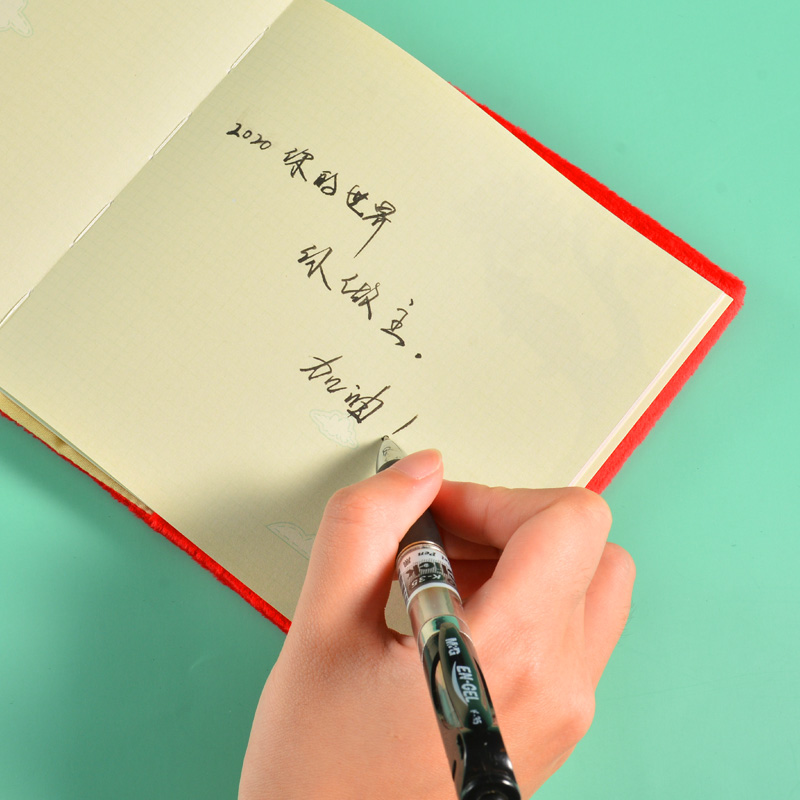 2020 你的世界
你做主.
加油!
K-35
M&G
EN-GEL